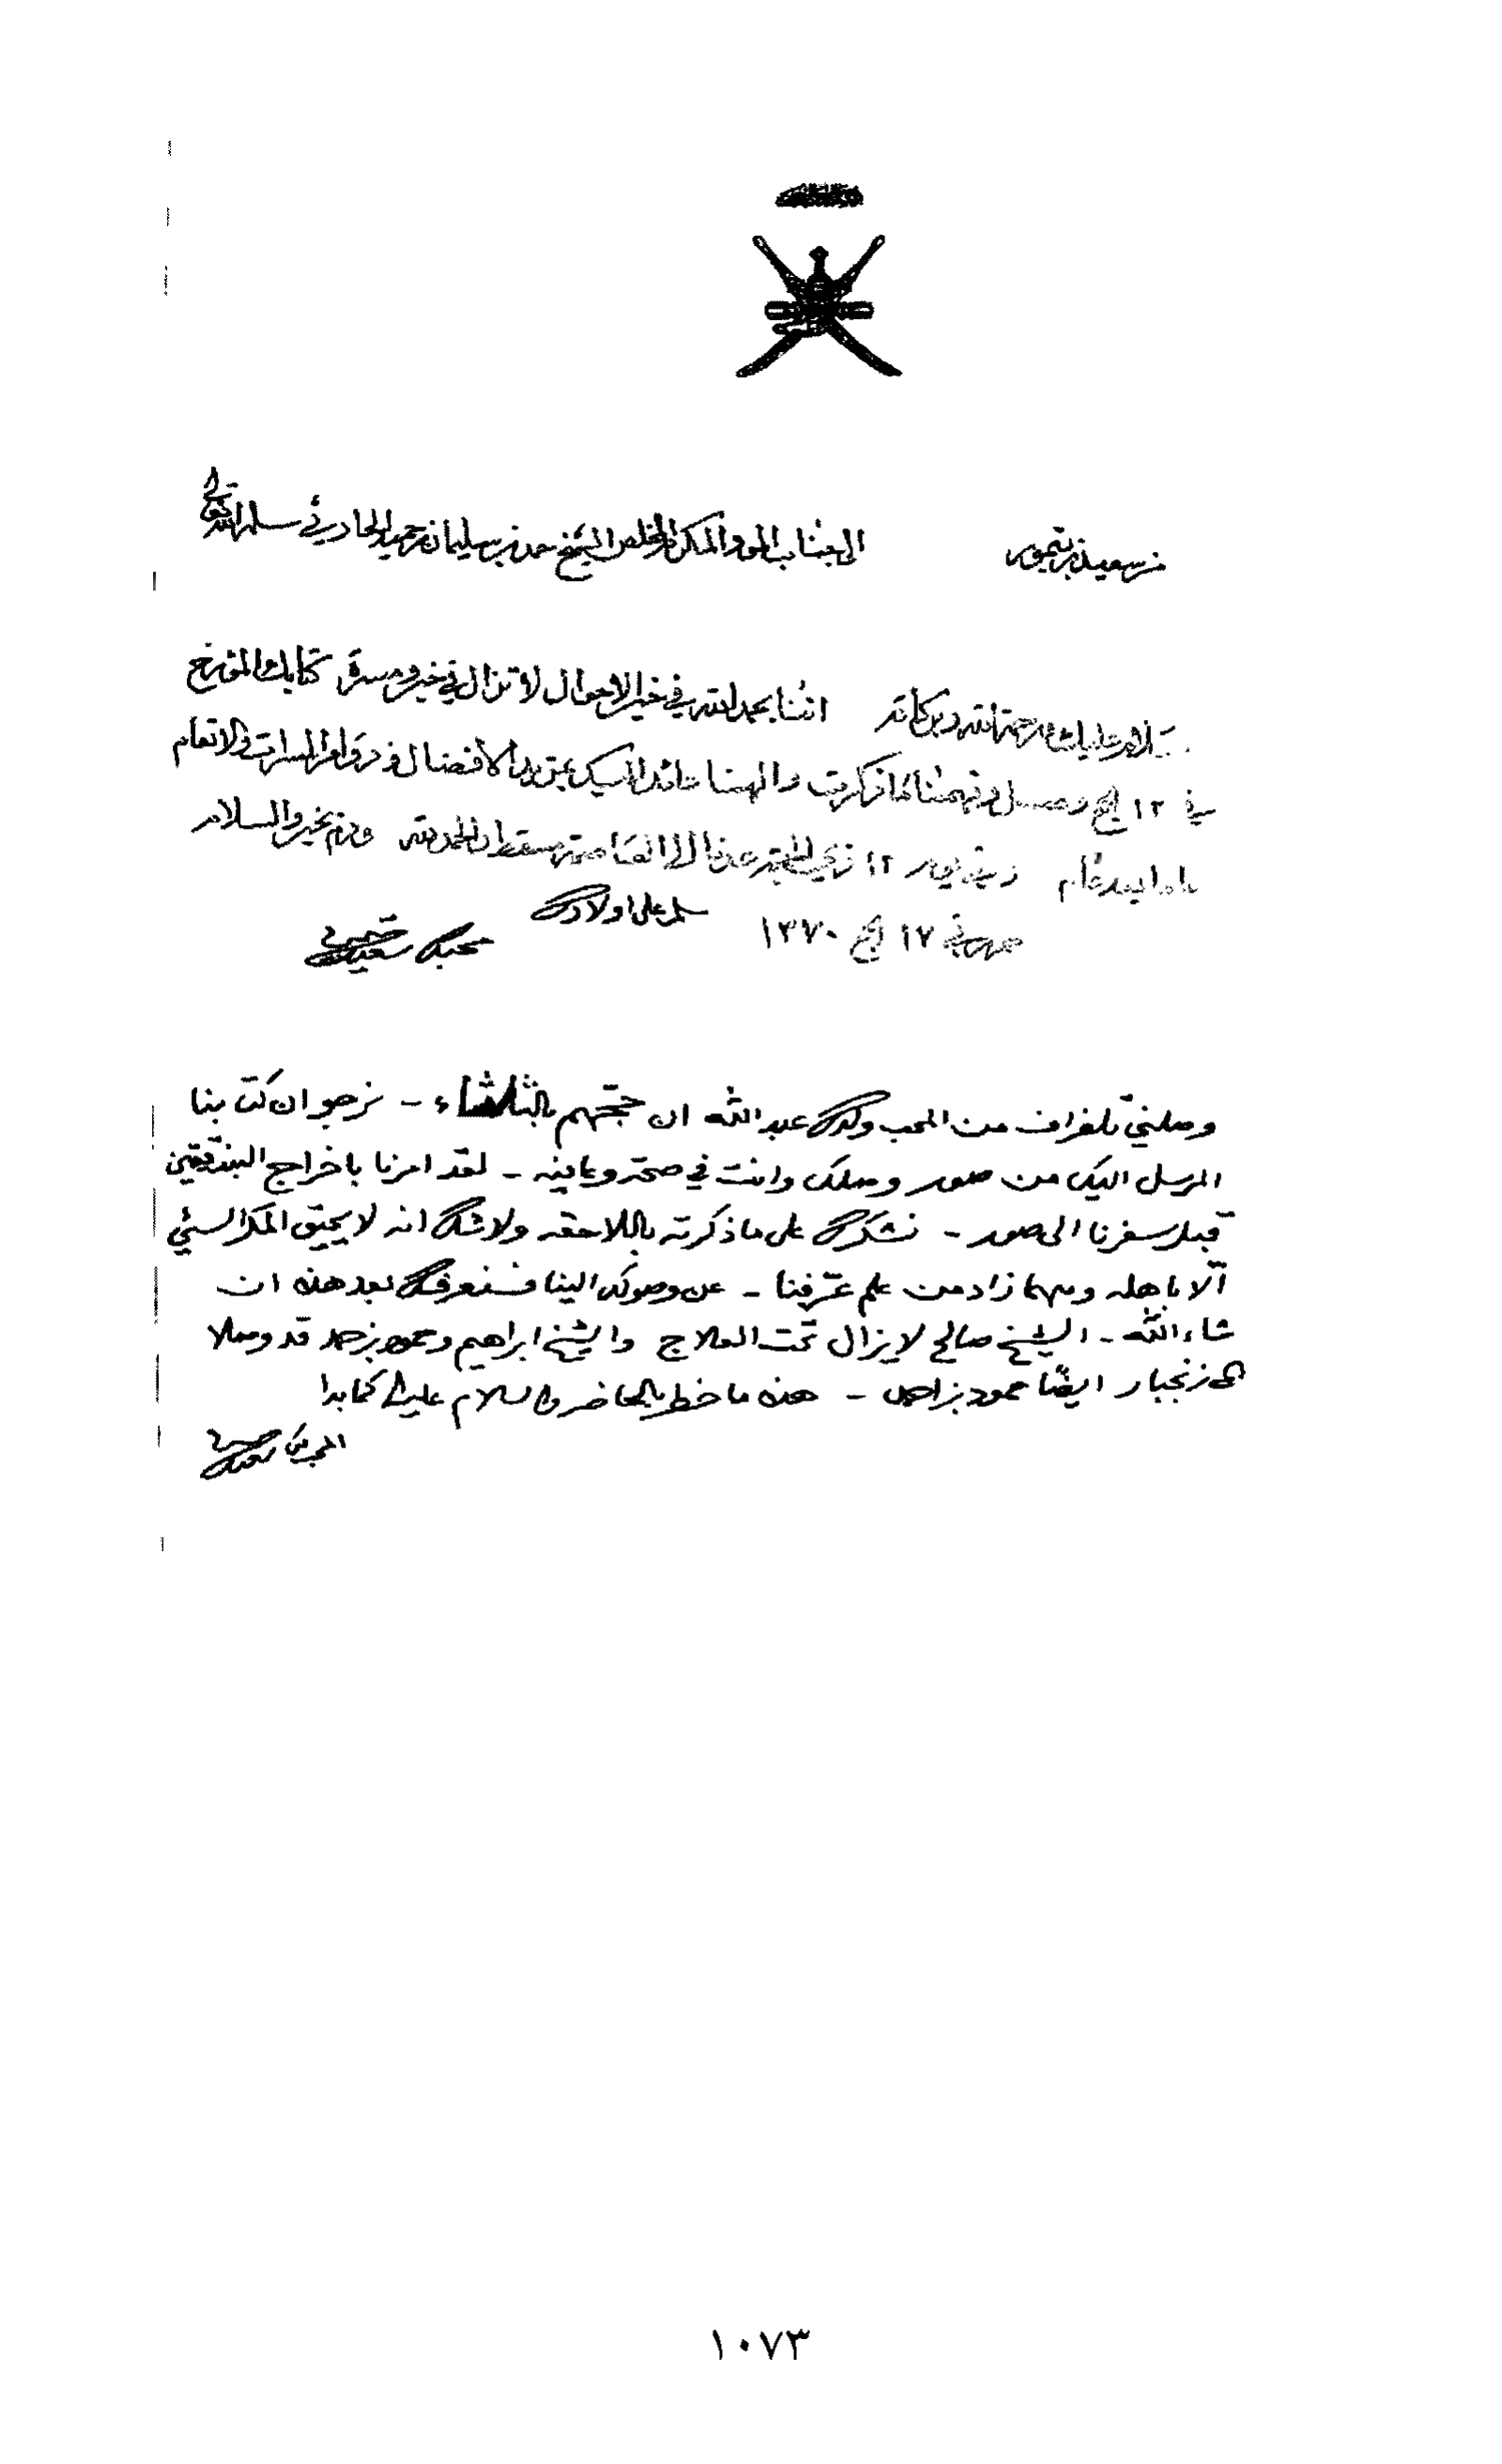 من سعيد بن تيمور الى جناب المود المكرم المخلص الشيخ حمد بن سليمان بن حميد الحارثي سلمه الله تعالى
سلام عليك ورحمة الله وبركاته اننا بحمد الله في خير الاحوال لا تزال في خير ومسرة كتابك المؤرخ
في ١٢ الحج وصل وفهمنا ما ذكرت والهنا عائد اليك بمزيد الافضال ودوام المسرات والانعام
عاما بعد عام وفي يوم ١٢ ذي الحجة عدنا الى العاصمة مسقط والحمد لله ودم بخير والسلام
حرر في ١٧ الحج ١٣٧٠ سلم على اولادك
محبك سعيد بن تيمور
وصلني تلغراف من المحب ولدك عبدالله ان حجهم بالثلاثاء - نرجو ان كتابنا
المرسل اليك من صور وصلك وانت في صحة وعافية - لقد امرنا باخراج البندقتين
قبل سفرنا الى صور - نشكرك على ما ذكرته باللاحقه ولا شك انه لا يحيق المكر السيئ
آلا باهله ومهما زاد من علم عرّفنا - عن وصولك الينا فسنعرفك بعد هذه ان
شاء الله - الشيخ صالح لا يزال تحت العلاج والشيخ ابراهيم وحمود بن حمد قد وصلا
الى زنجبار ايضًا حمود بن احمد - هذه ما خطر بالخاطر والسلام عليك كما بدا
المحب لك سعيد
١٠٧٣